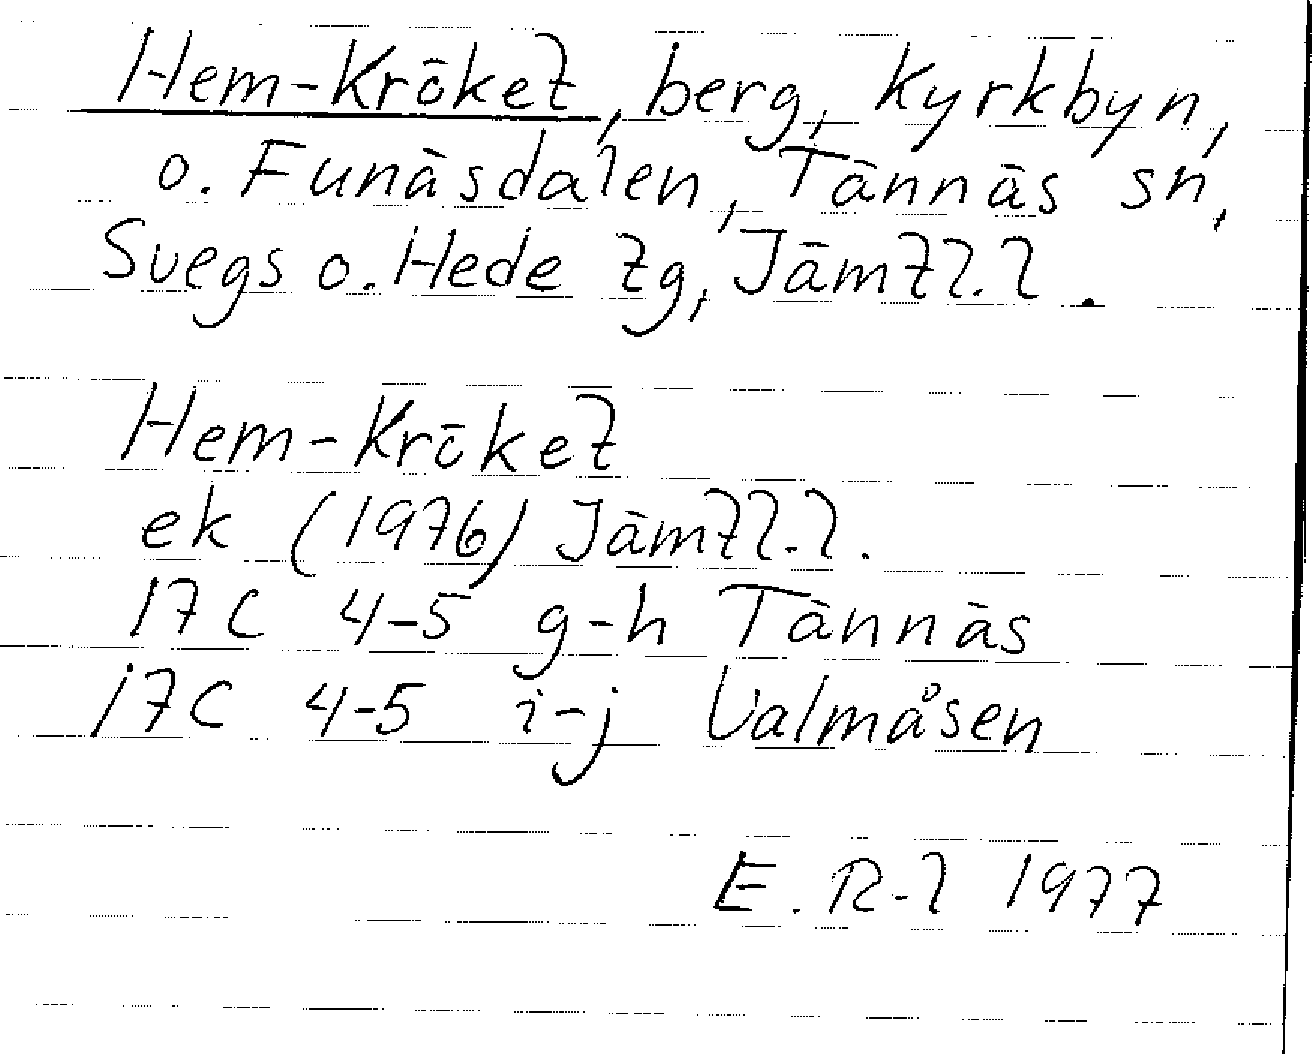 Hem-Kröket, berg, Kyrkbyn,
o. Funäsdalen, Tännäs sn,
Svegs o. Hede tg, Jämtl.l.
Hem-Kröket
ek (1976) Jämtl.l.
17C 4-5 g-h Tännäs
17C 4-5 i-j Valmåsen
E. R-l 1977